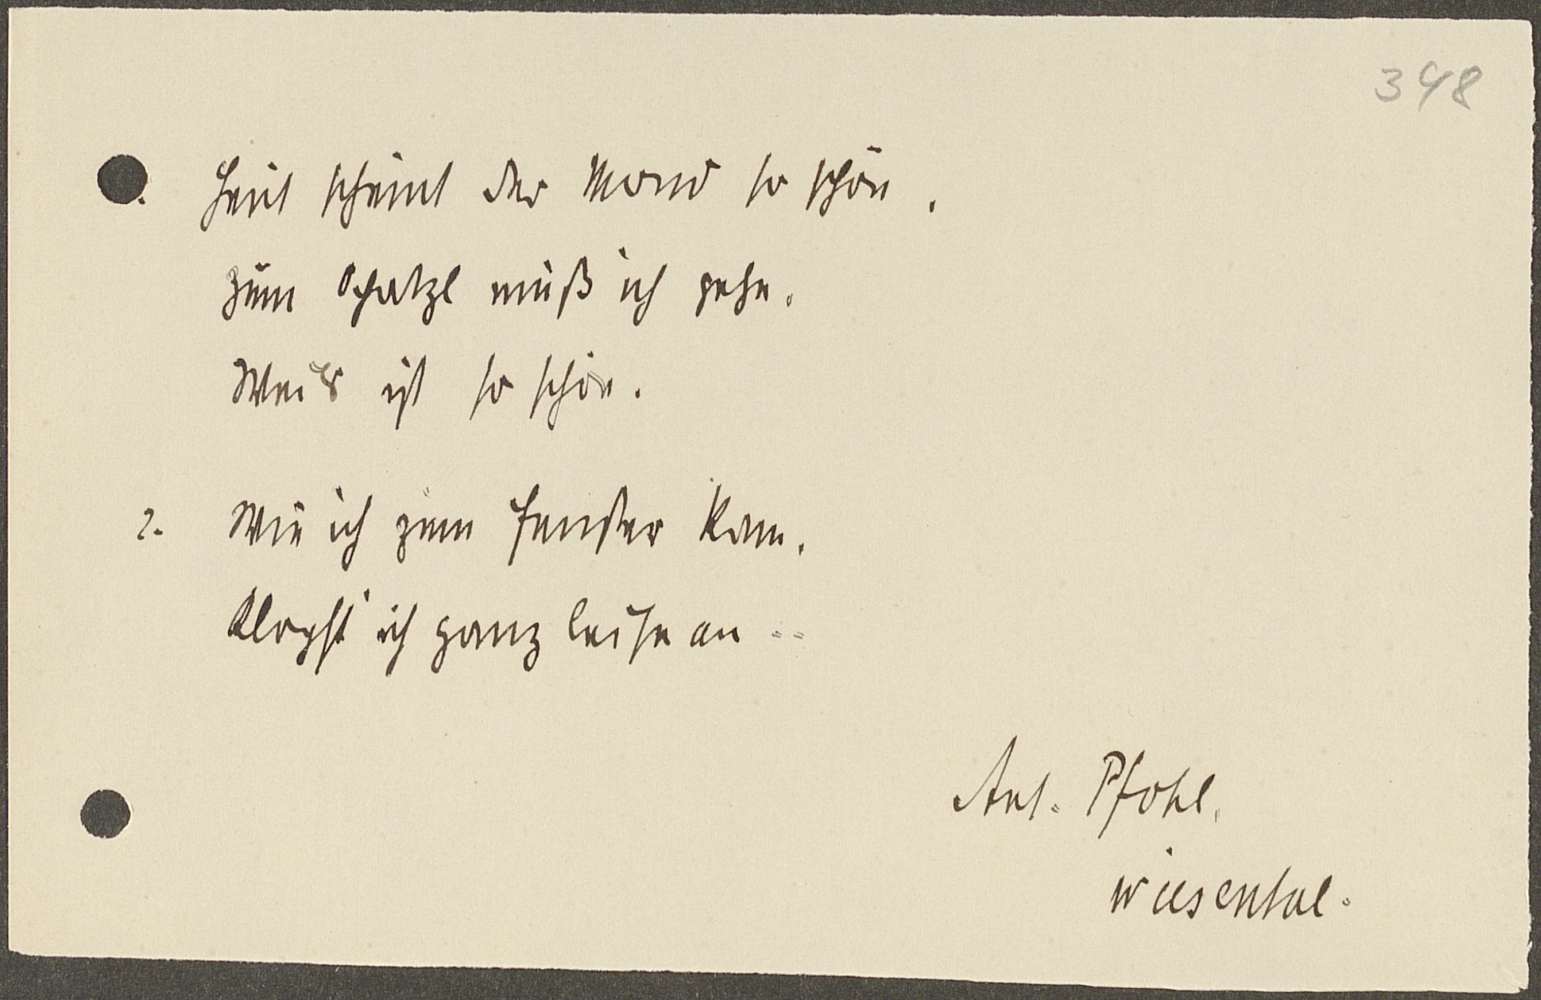 348
Heut scheint der Mond so schön,
zum Schatzl muß ich gehn.
Weils ist so schön.
2. Wie ich zum Fenster kam,
klopft ich ganz leise an --
Ant. Pfohl,
Wiesental.